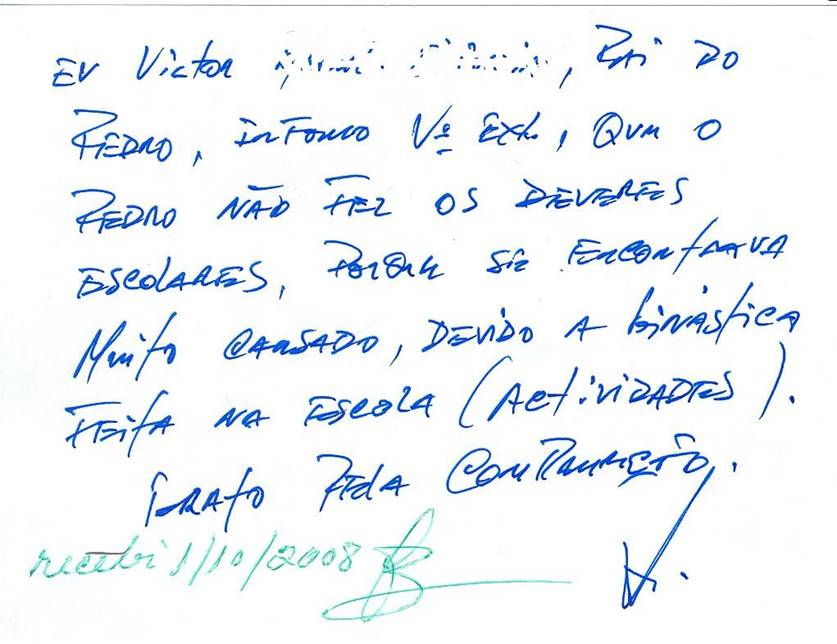 EU Victor, PAI DO
PEDRO, INFORMO Vª EXª, QUE O
PEDRO NÃO FEZ OS DEVERES
ESCOLARES, PORQUE SE ENCONTRAVA
Muito CANSADO, DEVIDO A GINÁSTICA
FEITA NA ESCOLA (ACTIVIDADES).
GRATO PELA COMPREENÇÃO.
recebi 1/10/2008